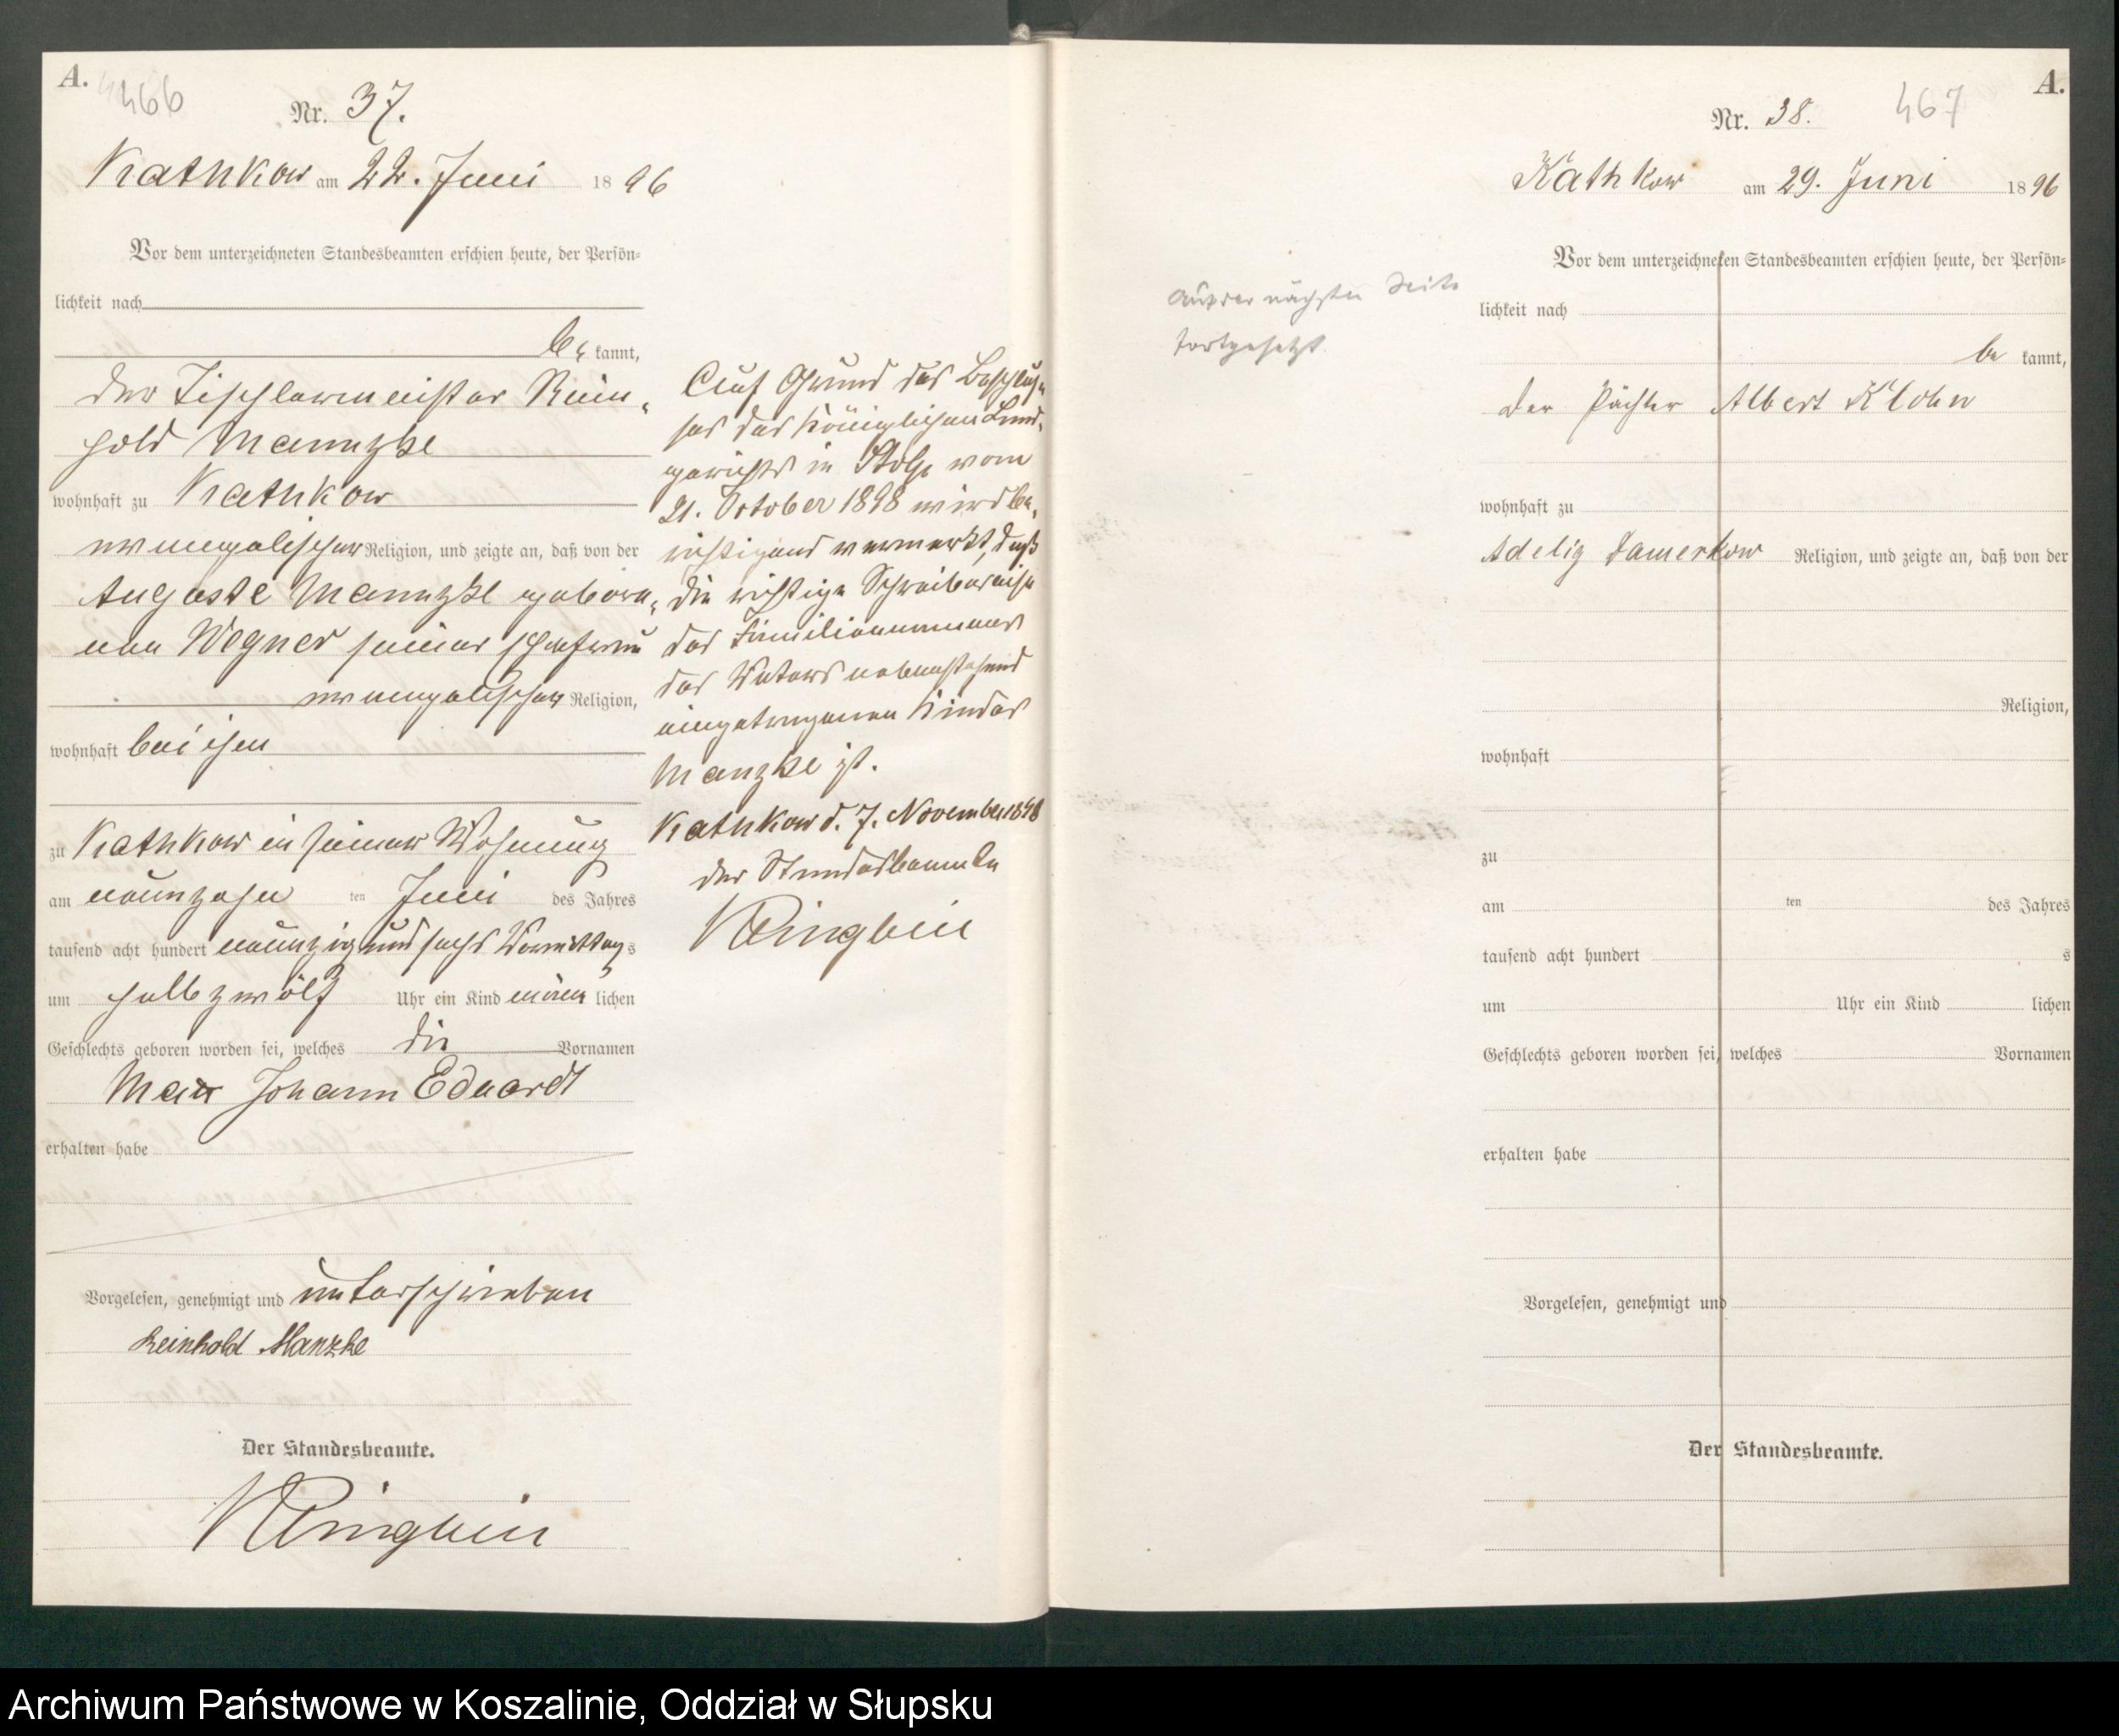 A.
466
Nr. 37.
Kathkow am 22. Juni 1896
Vor dem unterzeichneten Standesbeamten erschien heute, der Persön-
lichkeit nach
be kannt,
der Tischlermeister Rein-
hold Manntzke
wohnhaft zu Kathkow
evangelischer Religion, und zeigte an, daß von der
Auguste Manntzke gebore-
nen Wegner seiner Ehefrau
evangelischer Religion,
wohnhaft bei ihm
zu Kathkow in seiner Wohnung
am neunzehn ten Juni des Jahres
tausend acht hundert neunzig und sechs Vormittags
um halb zwölf Uhr ein Kind männ lichen
Geschlechts geboren worden sei, welches die Vornamen
Max Johann Eduardt
erhalten habe
Vorgelesen, genehmigt und unterschrieben
Reinhold Manzke
Der Standesbeamte.
Auf Grund des Beschlus-
ses des Königlichen Land-
gerichts in Stolp vom
21. October 1898 wird be-
richtigend vermerkt, daß
die richtige Schreibweise
des Familiennamens
des Vaters nebenstehend
eingetragenen Kindes
Manzke ist.
Kathkow d. 7. November 1898
der Standesbeamte
A.
Nr. 38.
467
Kathkow am 29. Juni 1896
Vor dem unterzeichneten Standesbeamten erschien heute, der Persön-
lichkeit nach
be kannt,
der Pächter Albert Klohn
wohnhaft zu
Adelig Damerkow Religion, und zeigte an, daß von der
Religion,
wohnhaft
zu
am ten des Jahres
tausend acht hundert s
um Uhr ein Kind lichen
Geschlechts geboren worden sei, welches Vornamen
erhalten habe
Vorgelesen, genehmigt und
Der Standesbeamte.
Auf der nächsten Seite
fortgesetzt.
Archiwum Państwowe w Koszalinie, Oddział w Słupsku